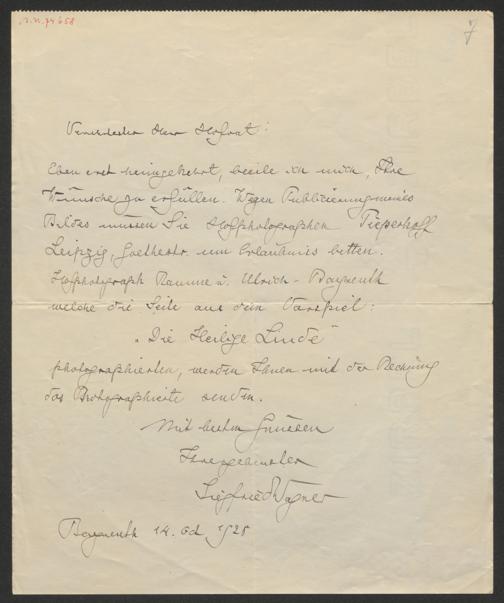 N.N. 74658
7
Verehrtester Herr Hofrat!
Eben erst heimgekehrt, beeile ich mich, Ihre
Wünsche zu erfüllen. Wegen Publizierung meines
Bildes müssen Sie Hofphotographen Pieperhoff
Leipzig, Goethestr. um Erlaubnis bitten.
Hofphotograph Ramme u. Ulrich - Bayreuth
welche die Seite aus dem Vorspiel:
"Die Heilige Linde"
photographierten, werden Ihnen mit der Rechnung
das Photographierte senden.
Mit besten Grüssen
Ihr
Siegfried Wagner
Bayreuth 14. Oct 1925